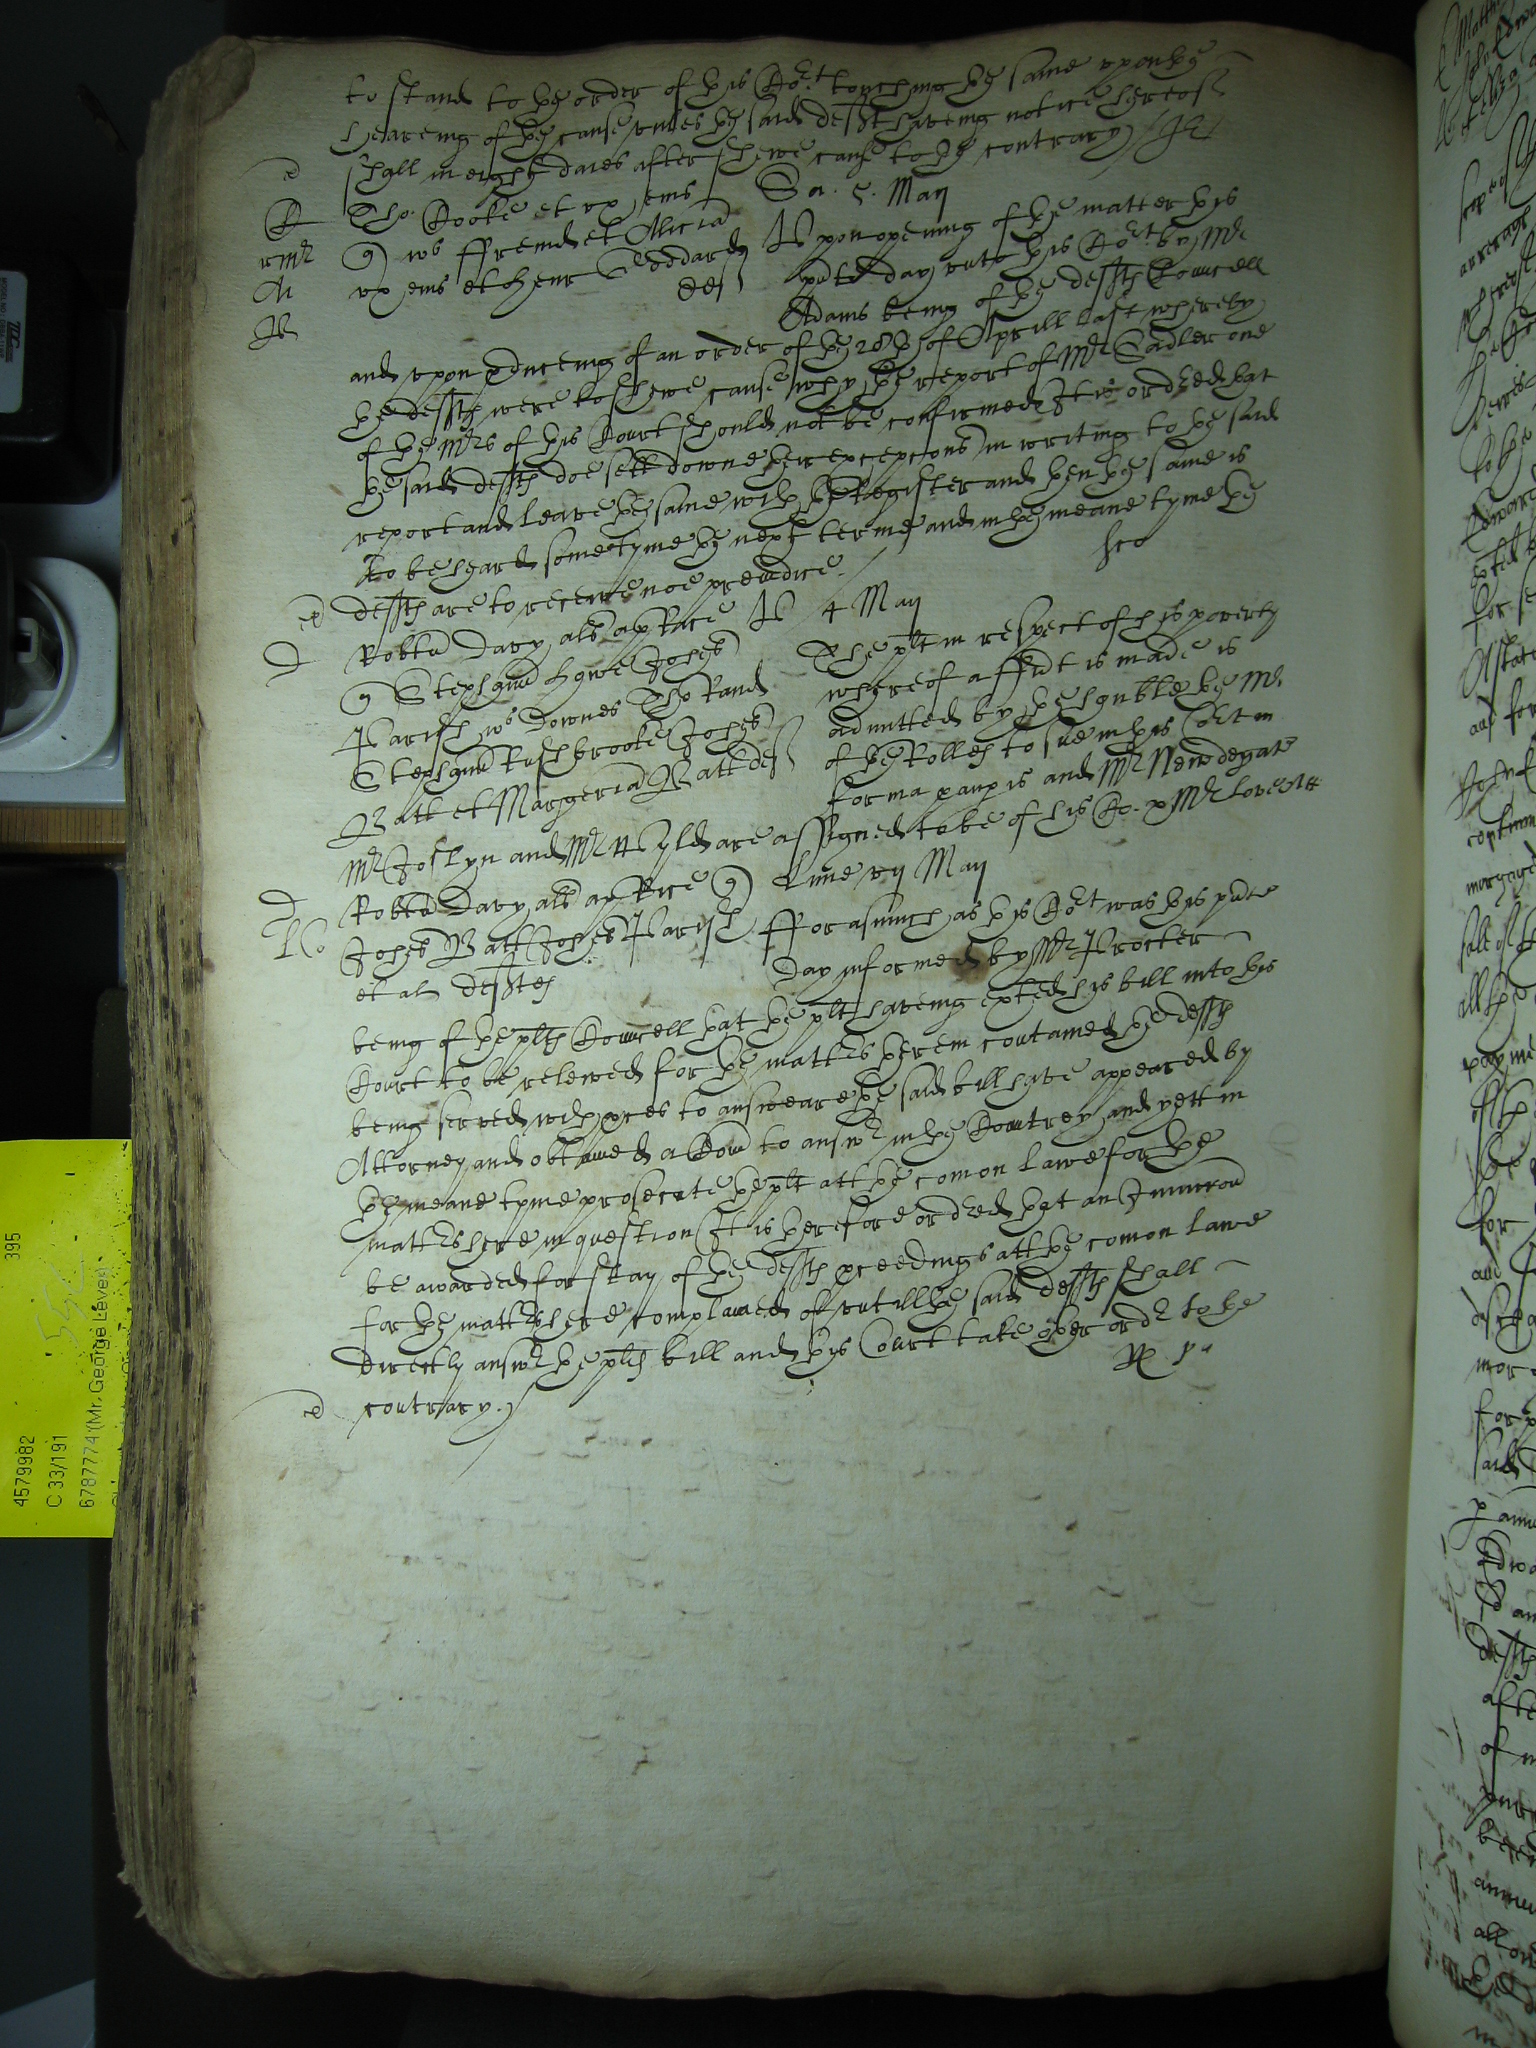 to stand to the order of this Cort touching the same upon the
heareing of the cause unles the said deft haveing notice hereof
shall in eight daies after shewe cause to the contrary
Tho: Cooke et ux eius Sa. 5. May
q ws ffrend et Alicia Upon opening of the matter this
ux eius et Henr Goddard pnte day unto this Cort by Mr
def Adams being of the defts Councell
and upon pduceing of an order of the 28th of Aprill last whereby
the defts were to shewe cause why the report of Mr Sadler one
of the Mrs of this Court should not be confirmed It is ordred that
the said defts doe sett downe ther excepcons in writing to the said
report and leave the same with the Register and then the same is
to be heard sometyme the next terme and in the meane tyme the
defts are to receive noe preiudice
Robtu Davy als ap Rice 4 May
q Stephanu Hawe Johes The plt in respect of his poverty
Parish ws Downes Tho Rand whereof affidt is made is
Stephanu Rushbrooke Johes admitted by the honble the Mr
Batt et Margeria Batt def of the Rolles to sue in this Cort in
forma paupis and Mr Newdegate
Mr Joslyn and Mr Wyld are assigned to be of his Co. p Mr Lovelace
Robtu Davy als ap Rice q Lune vii May
Johes Batt Johes Parish fforasmuch as this Cort was this pnte
et al deftes day informed by Mr Procter
being of the plts Councell that the plt haveing exhted his bill into this
Court to be releived for the mattrs therein contained the defts
being served with pces to answeare the said bill have appeared by
Attorney and obtained a Com to answr in the Countrey and yett in
the meane tyme prosecute the plt att the comon lawe for the
mattrs here in question It is therefore ordred that an Iniunccon
be awarded for stay of the defts pceedings att the comon lawe
for the mattrs here complained of untill the said defts shall
directly answr the plts bill and this Court take other ordr to the
contrary
4579982 395
C 33/191
6787774 (Mr. George Leven)